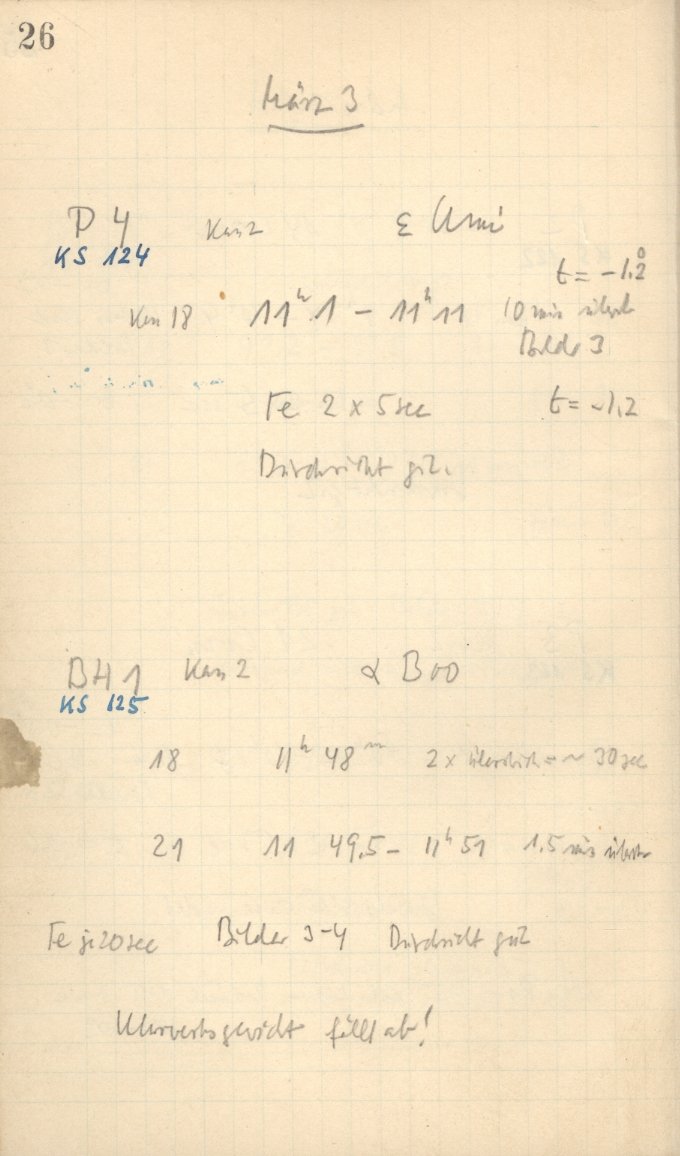 26
März 3
P 4 Kas 2 ε Umi
KS 124
t = -1.2°
Kas 18 11h 1 - 11h 11 10 min überst
Bilder 3
Fe 2 x 5 sec t = -1,2
Durchsicht gut.
BH 1 Kas 2 α Boo
KS 125
18 11h 48m 2 x = ~ 30 sec
21 11 49.5 - 11h 51 1.5 min überst
Fe je 20 sec Bilder 3-4 Durchsicht gut
Uhrwerksgewicht fällt ab!